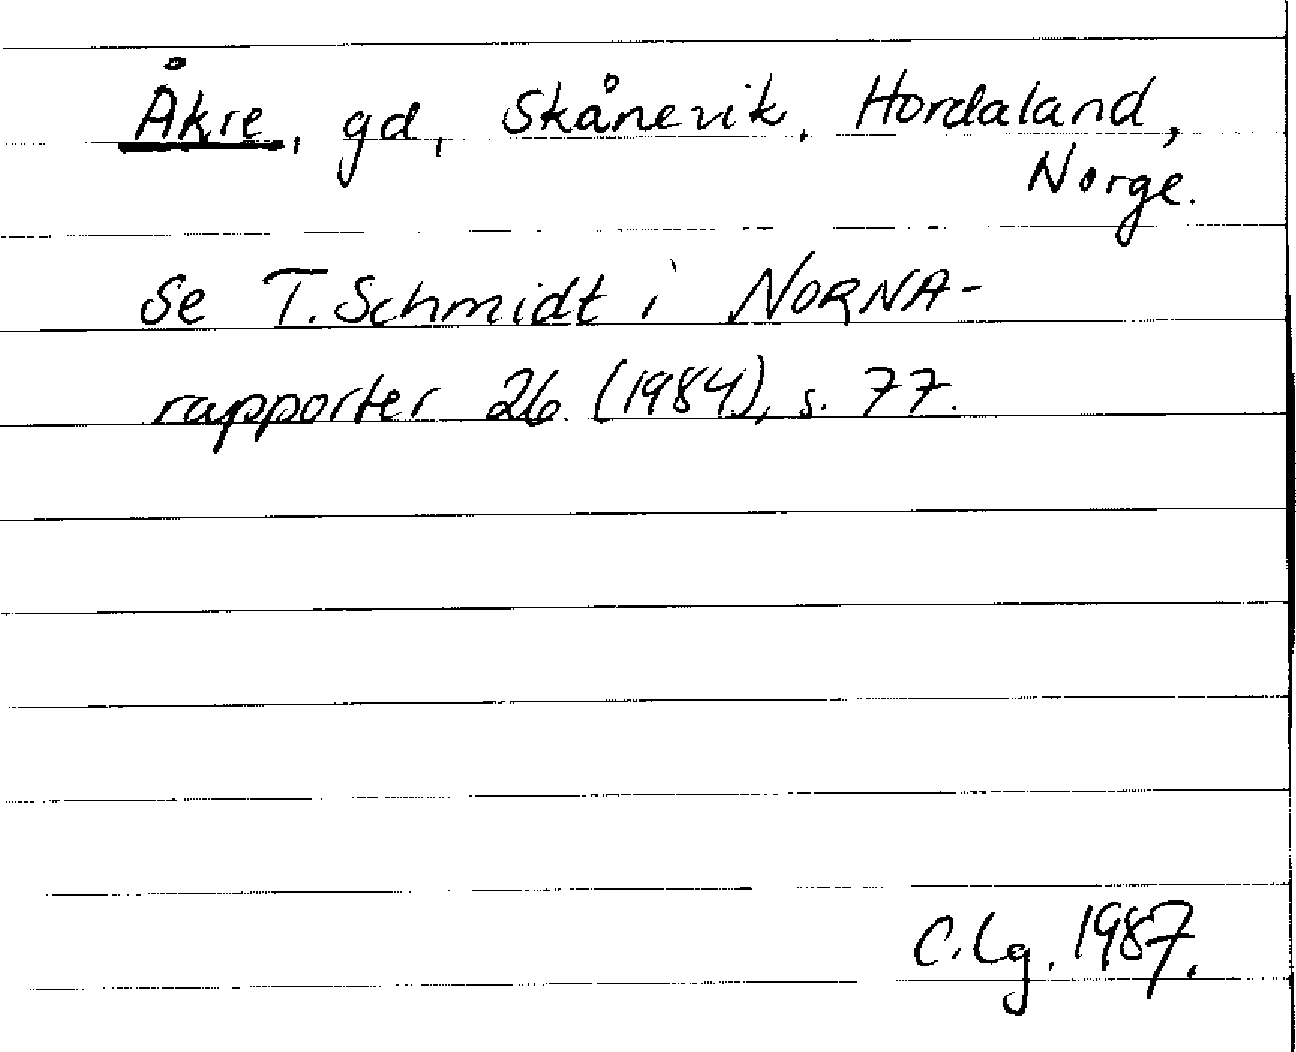 Åkre, gd, Skånevik, Hordaland,
Norge.
Se T. Schmidt i NORNA-
rapporter 26 (1984), s. 77.
C. Lg. 1987.